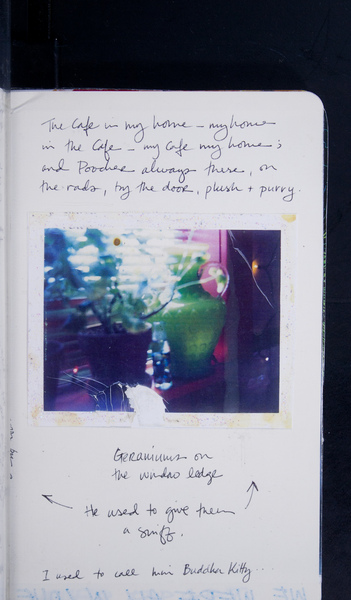 The Cafe in my home – my home
in the Cafe – my cafe my home;
and Poochee always there, on
the rads, by the door, plush + purry.
Geraniums on
the window ledge
He used to give them
a sniff.
I used to call him Buddha Kitty...